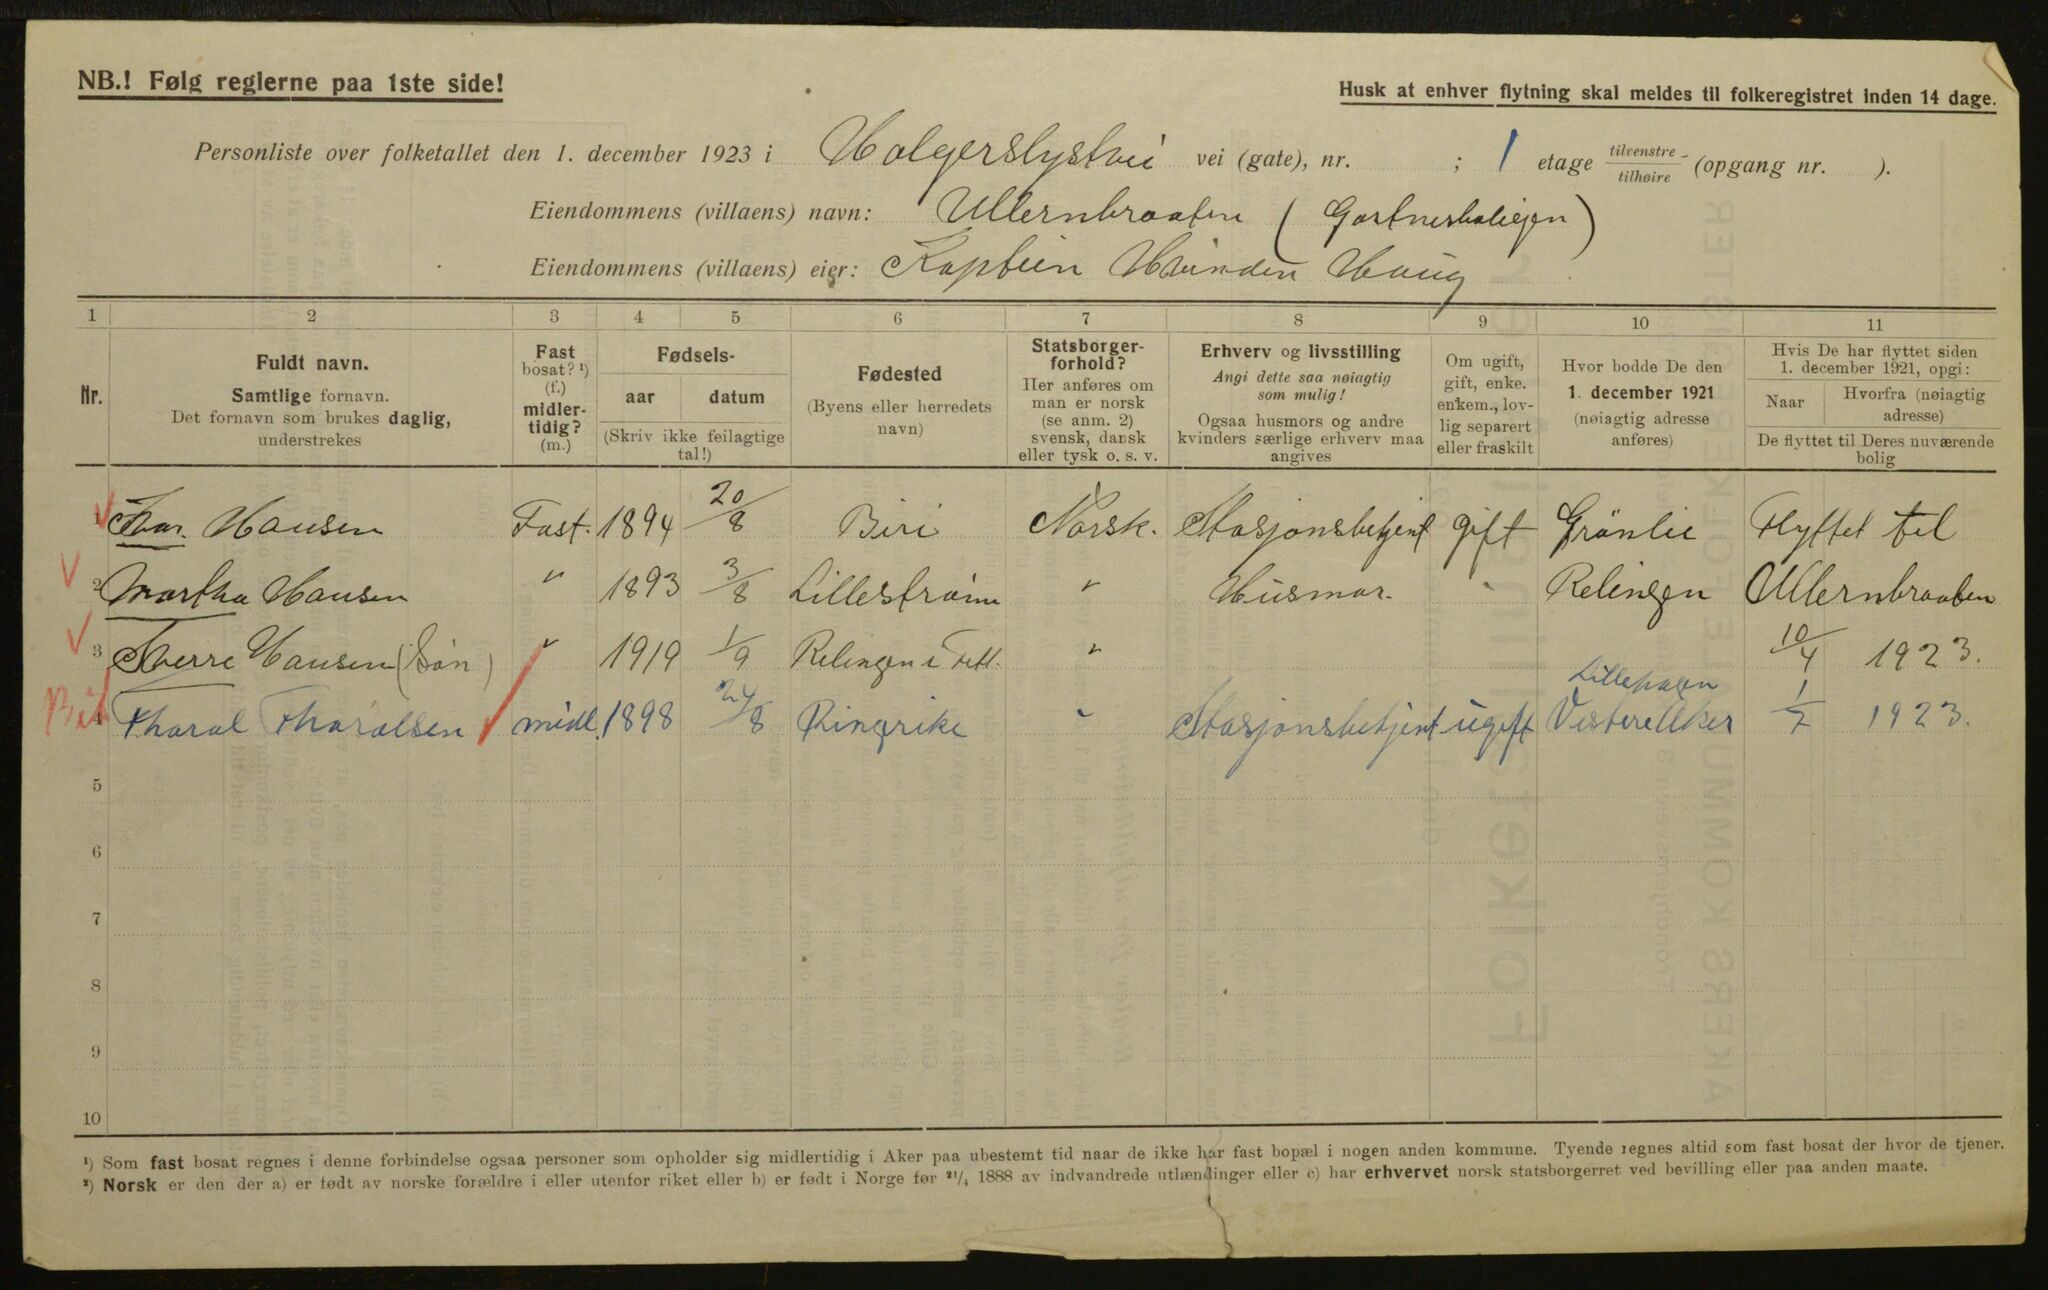 NB.! Følg reglerne paa 1ste side!
Husk at enhver flytning skal meldes til folkeregistret inden 14 dage.
Personliste over folketallet den 1. december 1923 i Holgerslystvei vei (gate), nr. ; 1 etage tilvenstre/tilhøire (opgang nr. ).
Eiendommens (villaens) navn: Ullernbraaten (Gartnerboligen)
Eiendommens (villaens) eier: Kaptein Hvinden Haug
1 2 3 4 5 6 7 8 9 10 11
Nr.
Fuldt navn.
Samtlige fornavn.
Det fornavn som brukes daglig,
understrekes
Fast
bosat? ¹)
(f.)
midler-
tidig?
(m.)
Fødsels-
aar datum
(Skriv ikke feilagtige
tal!)
Fødested
(Byens eller herredets
navn)
Statsborger-
forhold?
Her anføres om
man er norsk
(se anm. 2)
svensk, dansk
eller tysk o. s. v.
Erhverv og livsstilling
Angi dette saa nøiagtig
som mulig!
Ogsaa husmors og andre
kvinders særlige erhverv maa
angives
Om ugift,
gift, enke.
enkem., lov-
lig separert
eller fraskilt
Hvor bodde De den
1. december 1921
(nøiagtig adresse
anføres)
Hvis De har flyttet siden
1. december 1921, opgi:
Naar
Hvorfra (nøiagtig
adresse)
De flyttet til Deres nuværende
bolig
1 Ivar Hansen Fast. 1894 20/8 Biri Norsk. Stasjonsbetjent gift Grönlie Flyttet til
2 Martha Hansen " 1893 3/8 Lillestrøm " Husmor. " Relingen Ullernbraaten
3 Sverre Hansen (Sön) " 1919 1/9 Relingen i Fett. " 10/4 1923.
Lillehagen
4 Tharal Tharalsen midl. 1898 24/8 Ringrike " Stasjonsbetjent ugift Vestre Aker 1/7 1923.
5
6
7
8
9
10
¹) Som fast bosat regnes i denne forbindelse ogsaa personer som opholder sig midlertidig i Aker paa ubestemt tid naar de ikke har fast bopæl i nogen anden kommune. Tyende regnes altid som fast bosat der hvor de tjener.
²) Norsk er den der a) er født av norske forældre i eller utenfor riket eller b) er født i Norge før ²¹/₄ 1888 av indvandrede utlændinger eller c) har erhvervet norsk statsborgerret ved bevilling eller paa anden maate.